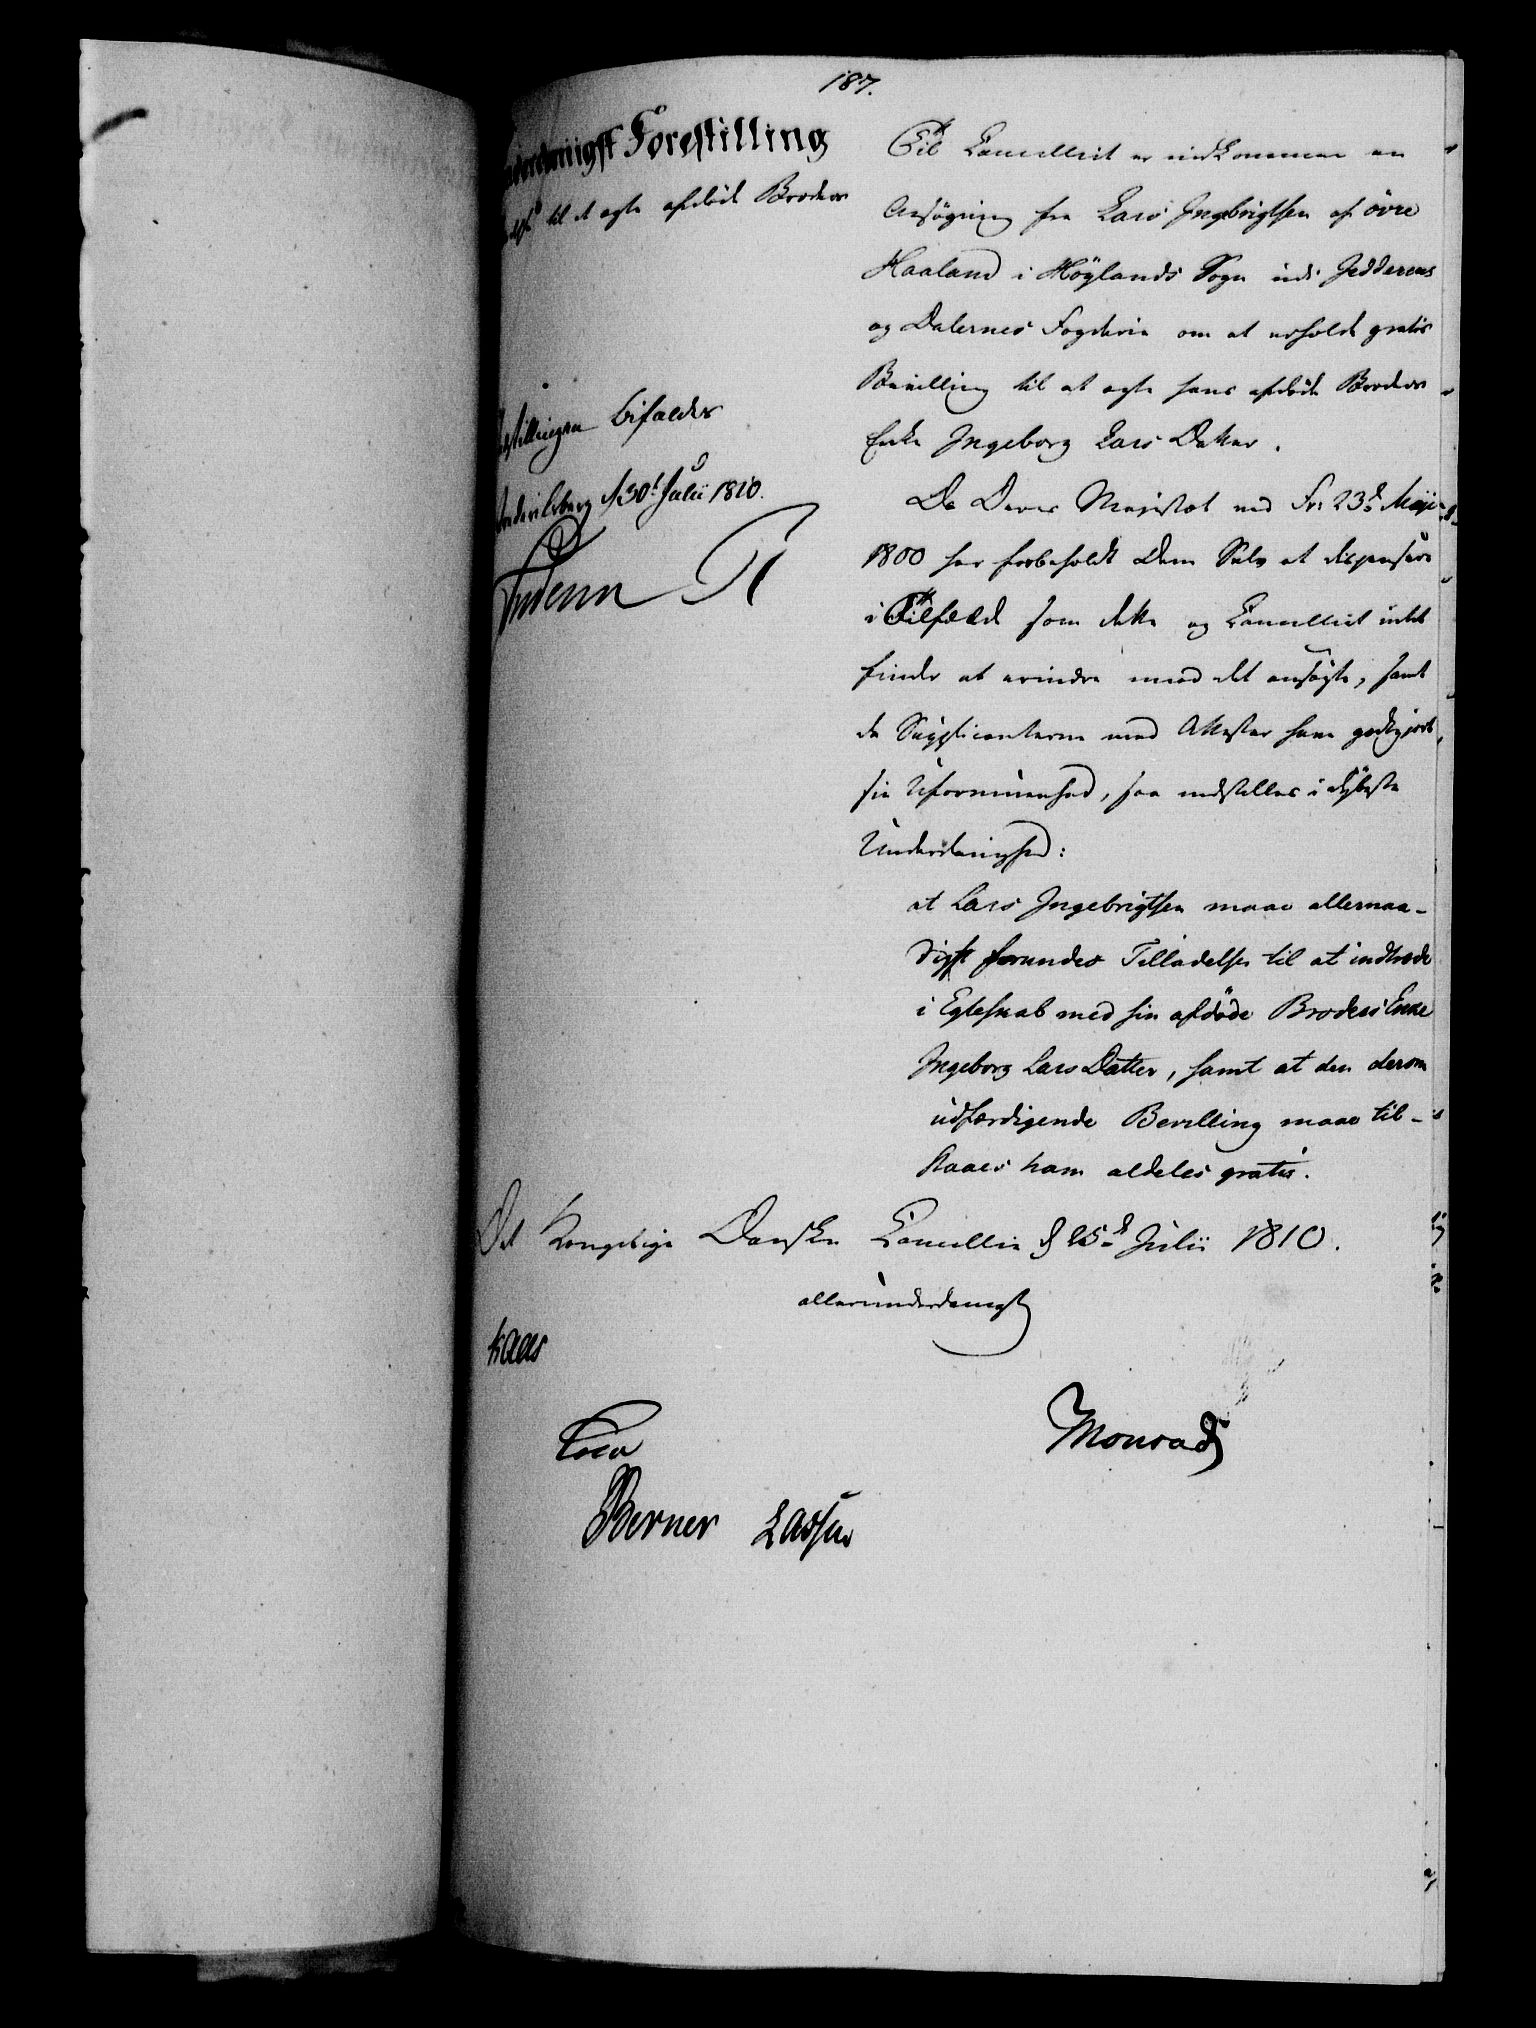 187.
Forestilling
til at ægte afdøde Broders
bifaldes
d 30t Julii 1810.
Til Cancelliet er indkommen en
Ansøgning fra Lars Ingebrigtsen af övre
Haaland i Höylands Sogn udi Jedderens
og Dalernes Fogderie om at erholde gratis
Bevilling til at ægte hans afdöde Broders
Enke Ingeborg Lars Datter.
Da Deres Majestæt ved Fr: 23d Maji
1800 har forbeholdt Dem Selv at dispensere
i Tilfæld som dette og Cancelliet intet
finder at erindre mod det ansögte, samt
da Supplicanterne med Attester have godtgjort
sin Uformuenhed, saa indstilles i dybeste
Underdanighed:
at Lars Ingebrigtsen maae allernaa-
digst forundes Tilladelse til at indtræde
i Egteskab med sin afdøde Broders Enke
Ingeborg Lars Datter, samt at den derom
udfærdigende Bevilling maae til-
staaes ham aldeles gratis.
Det Kongelige Danske Cancellie d 25d Julii 1810.
allerunderdanigst
Kaas
Monrad
Berner Lassen